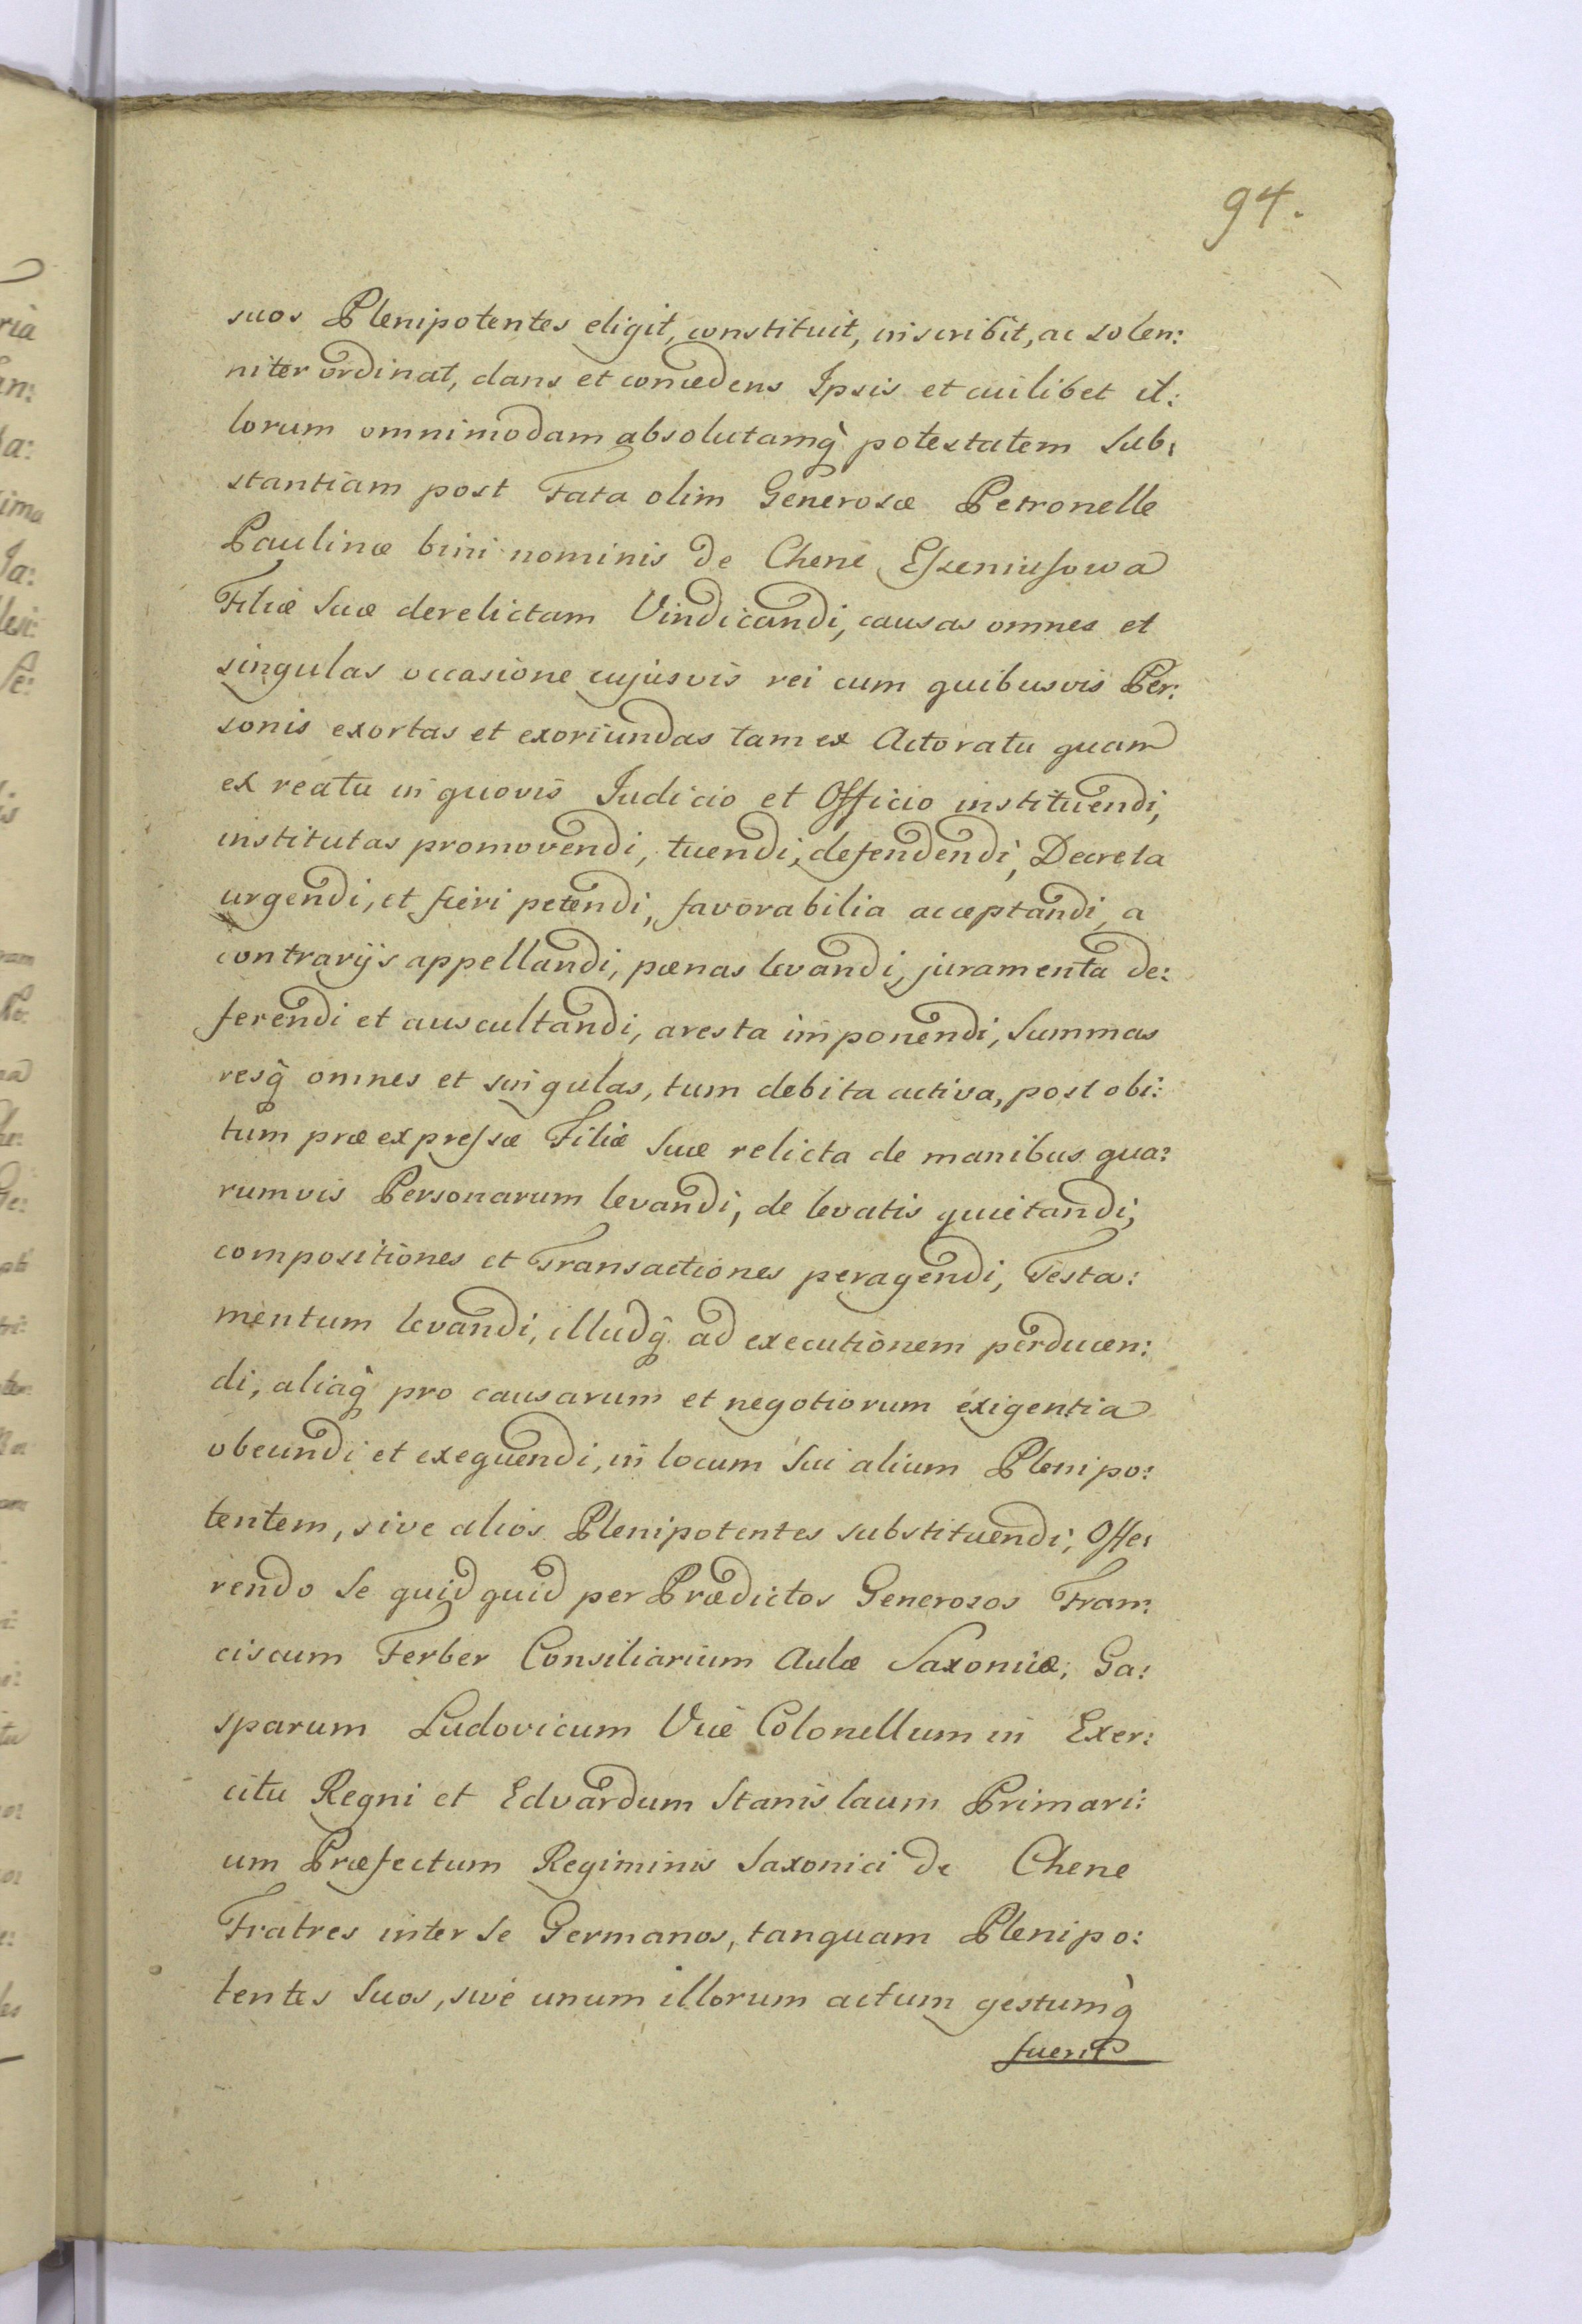 94.
suos Plenipotentes eligit, constituit, inscribit, ac solen:
niter ordinat, dans et concedens Ipsis et cuilibet il:
lorum omnimodam absolutamq̀ potestatem Sub:
stantiam post Fata olim Generosæ Petronelle
Paulinæ bini nominis de Chene Eſzeniuſowa
Filiæ Suæ derelictam Vindicandi, causas omnes et
singulas occasione cujusvis rei cum quibusvis Per:
sonis exortas et exoriundas tam ex Actoratu quam
ex reatu in quovis Judicio et Officio instituendi,
institutas promovendi, tuendi, defendendi, Decreta
urgendi, et fieri petendi, favorabilia acceptandi, a
contrarijs appellandi, pœnas levandi, juramenta de:
ferendi et auscultandi, aresta imponendi, Summas
resq̀ omnes et singulas, tum debita activa, post obi:
tum præexpreſsæ Filiæ Suæ relicta de manibus qua:
rumvis Personarum levandi, de levatis quietandi,
compositiones et Transactiones peragendi, Testa:
mentum levandi, illudq̀ ad executionem perducen:
di, aliaq̀ pro causarum et negotiorum exigentia
obeundi et exequendi, in locum Sui alium Plenipo:
tentem, sive alios Plenipotentes substituendi, Offe:
rendo Se quidquid per Prædictos Generosos Fran:
ciscum Ferber Consiliarium Aulæ Saxonicæ, Ga:
sparum Ludovicum Vice Colonellum in Exer:
citu Regni et Edvardum Stanislaum Primari:
um Præfectum Regiminis Saxonici de Chene
Fratres inter Se Germanos, tanquam Plenipo:
tentes Suos, sive unum illorum actum gestumq̀
fuerit